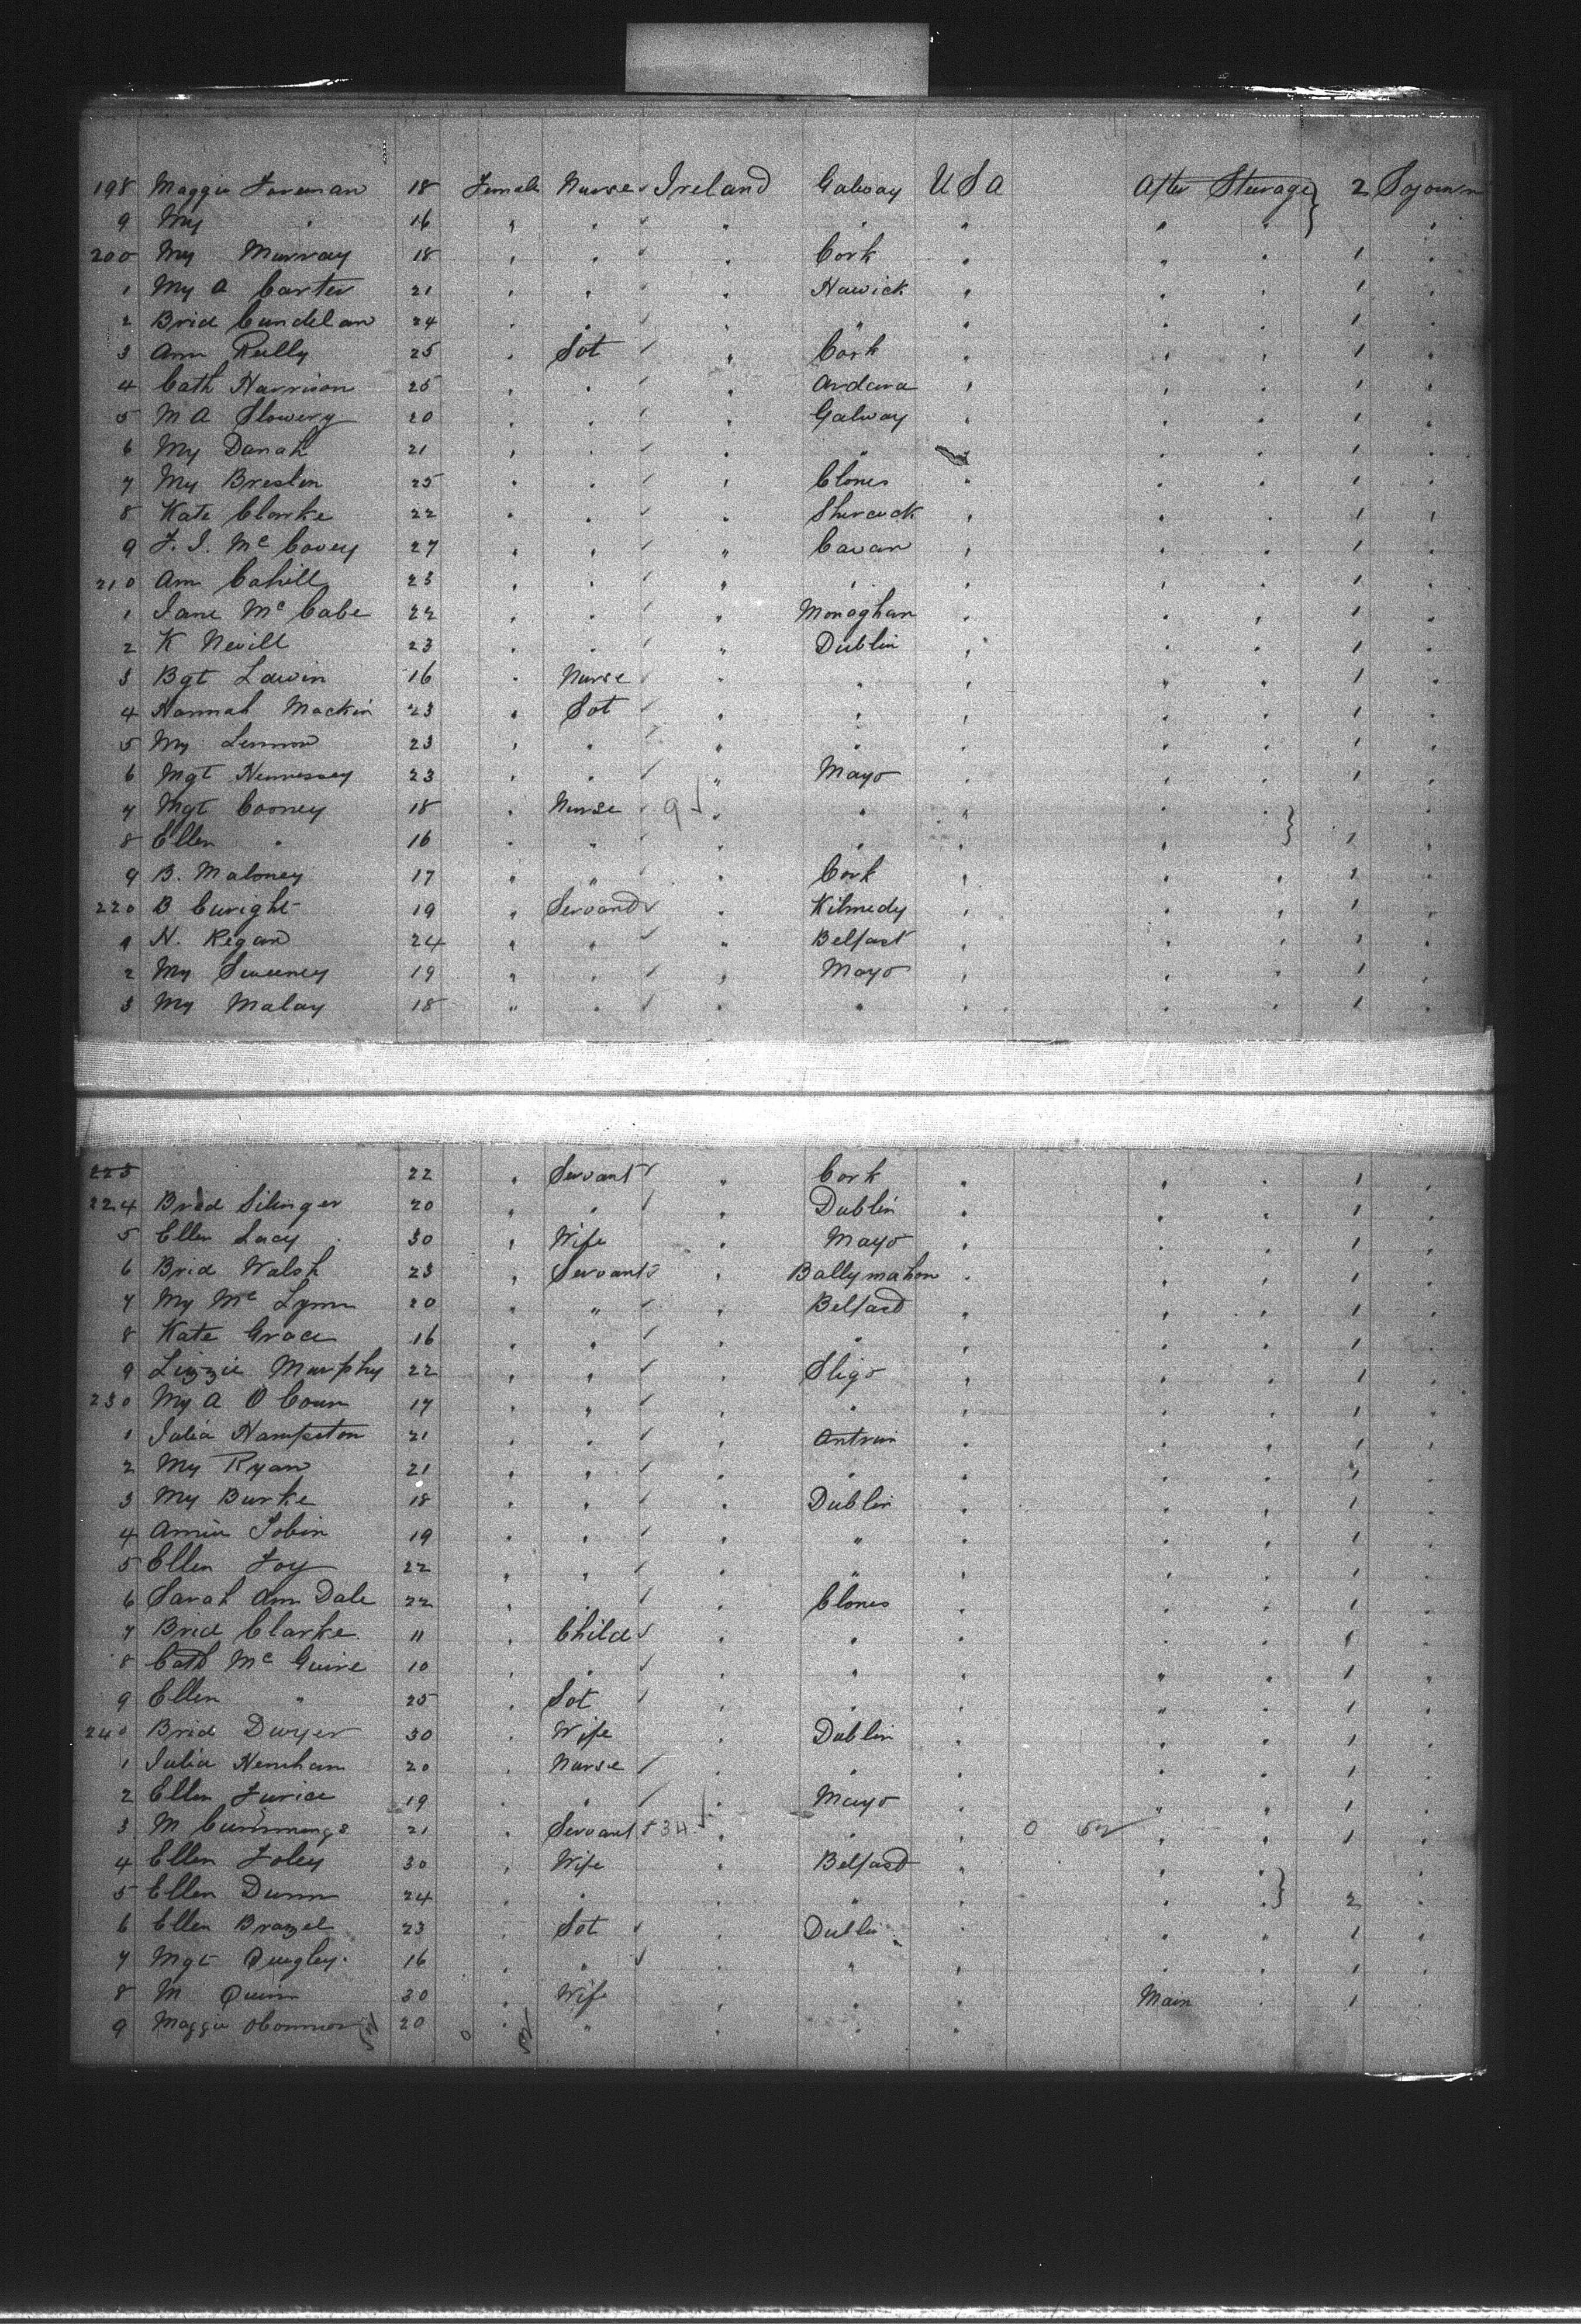 198 Maggie Foreman 18 Female Nurse ✓ Ireland Galway U S A After Steerage } 2 Sojourn
9 My " 16 " " ✓ " " " " " "
200 My Murray 18 " " ✓ " Cork " " " 1 "
1 My A Carter 21 " " ✓ " Hawick " " " 1 "
2 Brid Cundelan 24 " " ✓ " " " " " 1 "
3 Ann Reilly 25 " Sot ✓ " Cork " " " 1 "
4 Cath Harrison 25 " " ✓ " Ardara " " " 1 "
5 M A Slowery 20 " " ✓ " Galway " " " 1 "
6 My Danah 21 " " ✓ " " " " " 1 "
7 My Breslin 25 " " ✓ " Clones " " " 1 "
8 Kate Clarke 22 " " ✓ " Shercock " " " 1 "
9 J. J. Mc Covey 27 " " ✓ " Cavan " " " 1 "
210 Ann Cahill 23 " " ✓ " " " " " 1 "
1 Jane Mc Cabe 22 " " ✓ " Monaghan " " " 1 "
2 K Nevill 23 " " ✓ " Dublin " " " 1 "
3 Bgt Lawin 16 " Nurse ✓ " " " " " 1 "
4 Hannah Mackin 23 " Sot ✓ " " " " " 1 "
5 My Lennon 23 " " ✓ " " " " " 1 "
6 Mgt Hennessey 23 " " ✓ " Mayo " " " 1 "
7 Mgt Cooney 18 " Nurse ✓ 9 ✓ " " " " " }
8 Ellen " 16 " " ✓ " " " " " 1 "
9 B. Maloney 17 " " ✓ " Cork " " " 1 "
220 B Curight 19 " Servand ✓ " Kilmedy " " " 1 "
1 N. Regan 24 " " ✓ " Belfast " " " 1 "
2 My Sweeney 19 " " ✓ " Mayo " " " 1 "
3 My Malay 18 " " ✓ " " " " " 1 "
223 22 " Servant ✓ " Cork " " " 1 "
224 Brid Silinger 20 " " ✓ " Dublin " " " 1 "
5 Ellen Lacy 30 " Wife " Mayo " " " 1 "
6 Brid Walsh 23 " Servant ✓ " Ballymahon " " " 1 "
7 My Mc Lynn 20 " " ✓ " Belfast " " " 1 "
8 Kate Grace 16 " " ✓ " " " " " 1 "
9 Lizzie Murphy 22 " " ✓ " Sligo " " " 1 "
230 My A O Conn 17 " " ✓ " " " " " 1 "
1 Julia Hampston 21 " " ✓ " Antrim " " " 1 "
2 My Ryan 21 " " ✓ " " " " " 1 "
3 My Burke 18 " " ✓ " Dublin " " " 1 "
4 Annie Tobin 19 " " ✓ " " " " " 1 "
5 Ellen Foy 22 " " ✓ " " " " " 1 "
6 Sarah Ann Dale 22 " " ✓ " Clones " " " 1 "
7 Brid Clarke 11 " Child ✓ " " " " " 1 "
8 Cath Mc Guire 10 " " ✓ " " " " " 1 "
9 Ellen " 25 " Sot ✓ " " " " " 1 "
240 Brid Dwyer 30 " Wife " Dublin " " " 1 "
1 Julia Henehan 20 " Nurse ✓ " " " " " 1 "
2 Ellen Furice 19 " " ✓ " Mayo " " " 1 "
3 M Cummings 21 " Servant ✓ 34 ✓ " " " 0 " " 1 "
4 Ellen Foley 30 " Wife " Belfast " " " } "
5 Ellen Dunn 24 " " " " " " " 2 "
6 Ellen Brazel 23 " Sot ✓ " Dublin " " " 1 "
7 Mgt Quigley 16 " " ✓ " " " " " 1 "
8 M Quinn 30 " Wife " " " Main " 1 "
9 Maggie OConnor 20 0 " " " " "